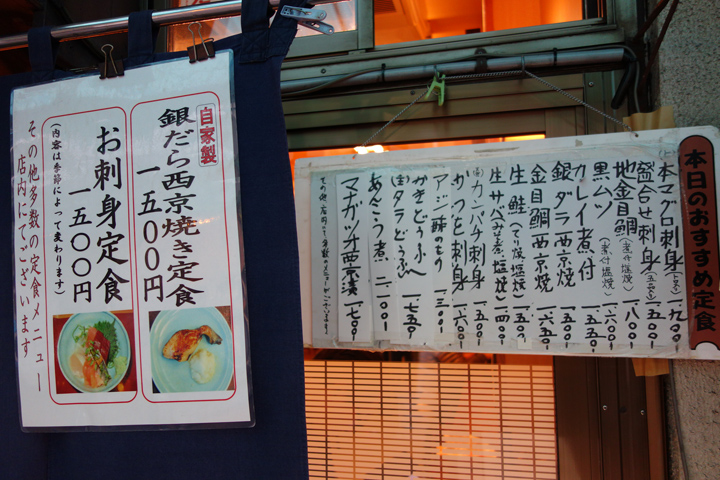 自家製
銀だら西京焼き定食
一五〇〇円
お刺身定食
一五〇〇円
(内容は季節によって変わります)
その他多数の定食メニュー
店内にてございます
本日のおすすめ定食
本マグロ刺身
一、九〇〇
盛合せ刺身
一、五〇〇
地金目鯛(煮付・塩焼)
一、八〇〇
黒ムツ(煮付・塩焼)
カレイ煮付
一、五五〇
銀ダラ西京焼
一、五五〇
金目鯛西京焼
一、六五〇
生鮭(てり焼・塩焼)
一、五〇〇
生サバみそ煮・塩焼
一、四〇〇
カンパチ刺身
一、五〇〇
かつを刺身
一、六〇〇
アジ酢のもの
一、三〇〇
かきどうふ
一、七五〇
タラどうふ
あんこう煮
二、一〇〇
マナガツオ西京漬
一、七〇〇
その他店内にて多数のメニューがございます